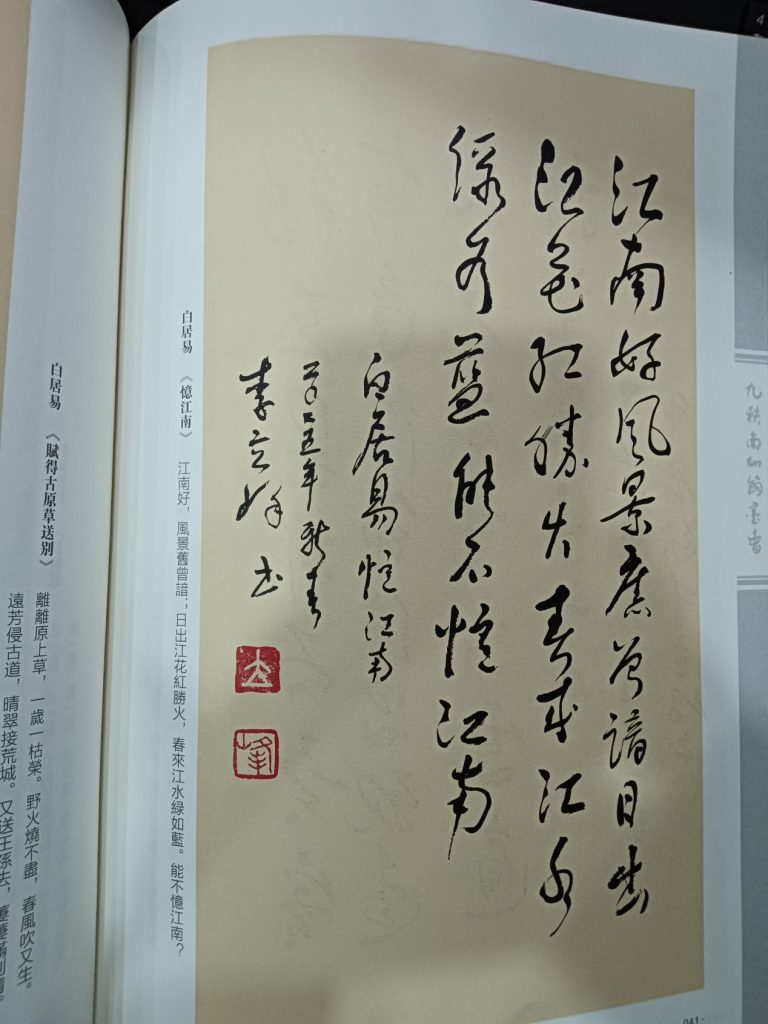 九秩南山翰墨香
江南好風景舊曾諳日出
江花紅勝火春來江水
綠如藍能不憶江南
白居易憶江南
二〇一五年新春
李立峰書
立
峰
白居易 《憶江南》 江南好，風景舊曾諳；日出江花紅勝火，春來江水綠如藍。能不憶江南？
041
白居易 《賦得古原草送別》
離離原上草，一歲一枯榮。野火燒不盡，春風吹又生。
遠芳侵古道，晴翠接荒城。又送王孫去，萋萋滿別情。